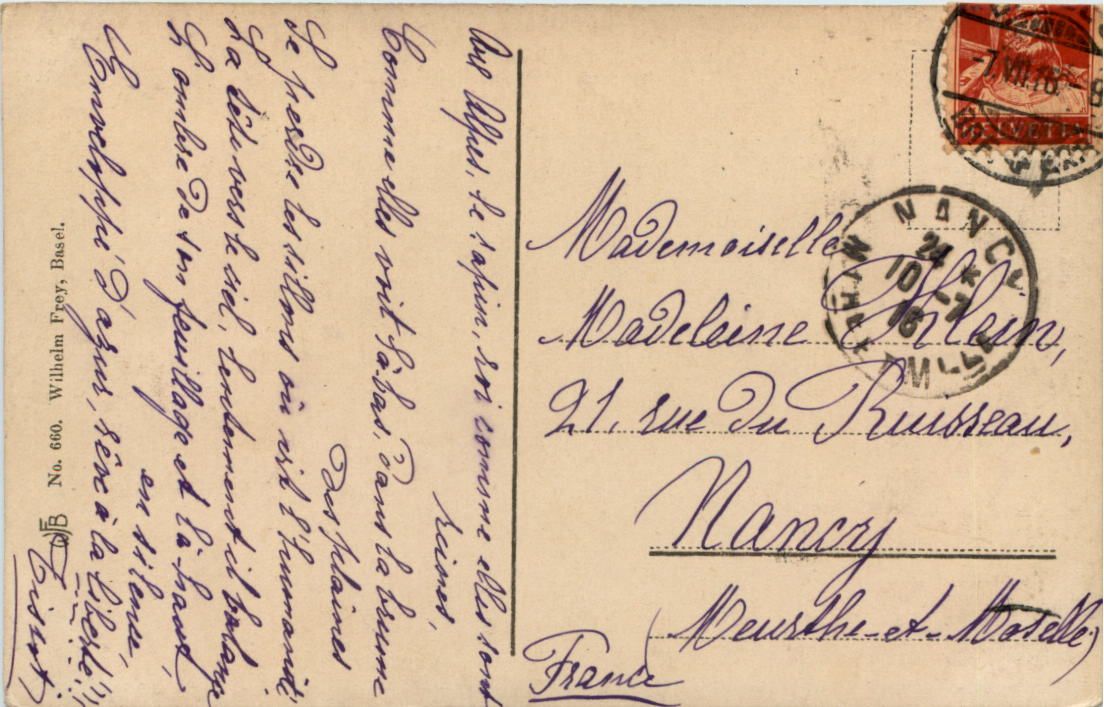 Aux Alpes, le sapin, roi comme elles sont
reines,
Comme elles voit là-bas, dans la brume
des plaines
Se perdre les sillons où vit l'humanité
La tête vers le ciel, lentement il balance
L'ombre de son feuillage et là-haut,
en silence,
Enveloppé d'azur, rêve à la liberté!!
Tissot
No. 660. Wilhelm Frey, Basel.
-7.VII.16
HELVETIA
NANCY
24
10 - 7
16
Mademoiselle
Madeleine
21, rue du Ruisseau,
Nancy
(Meurthe-et-Moselle)
France